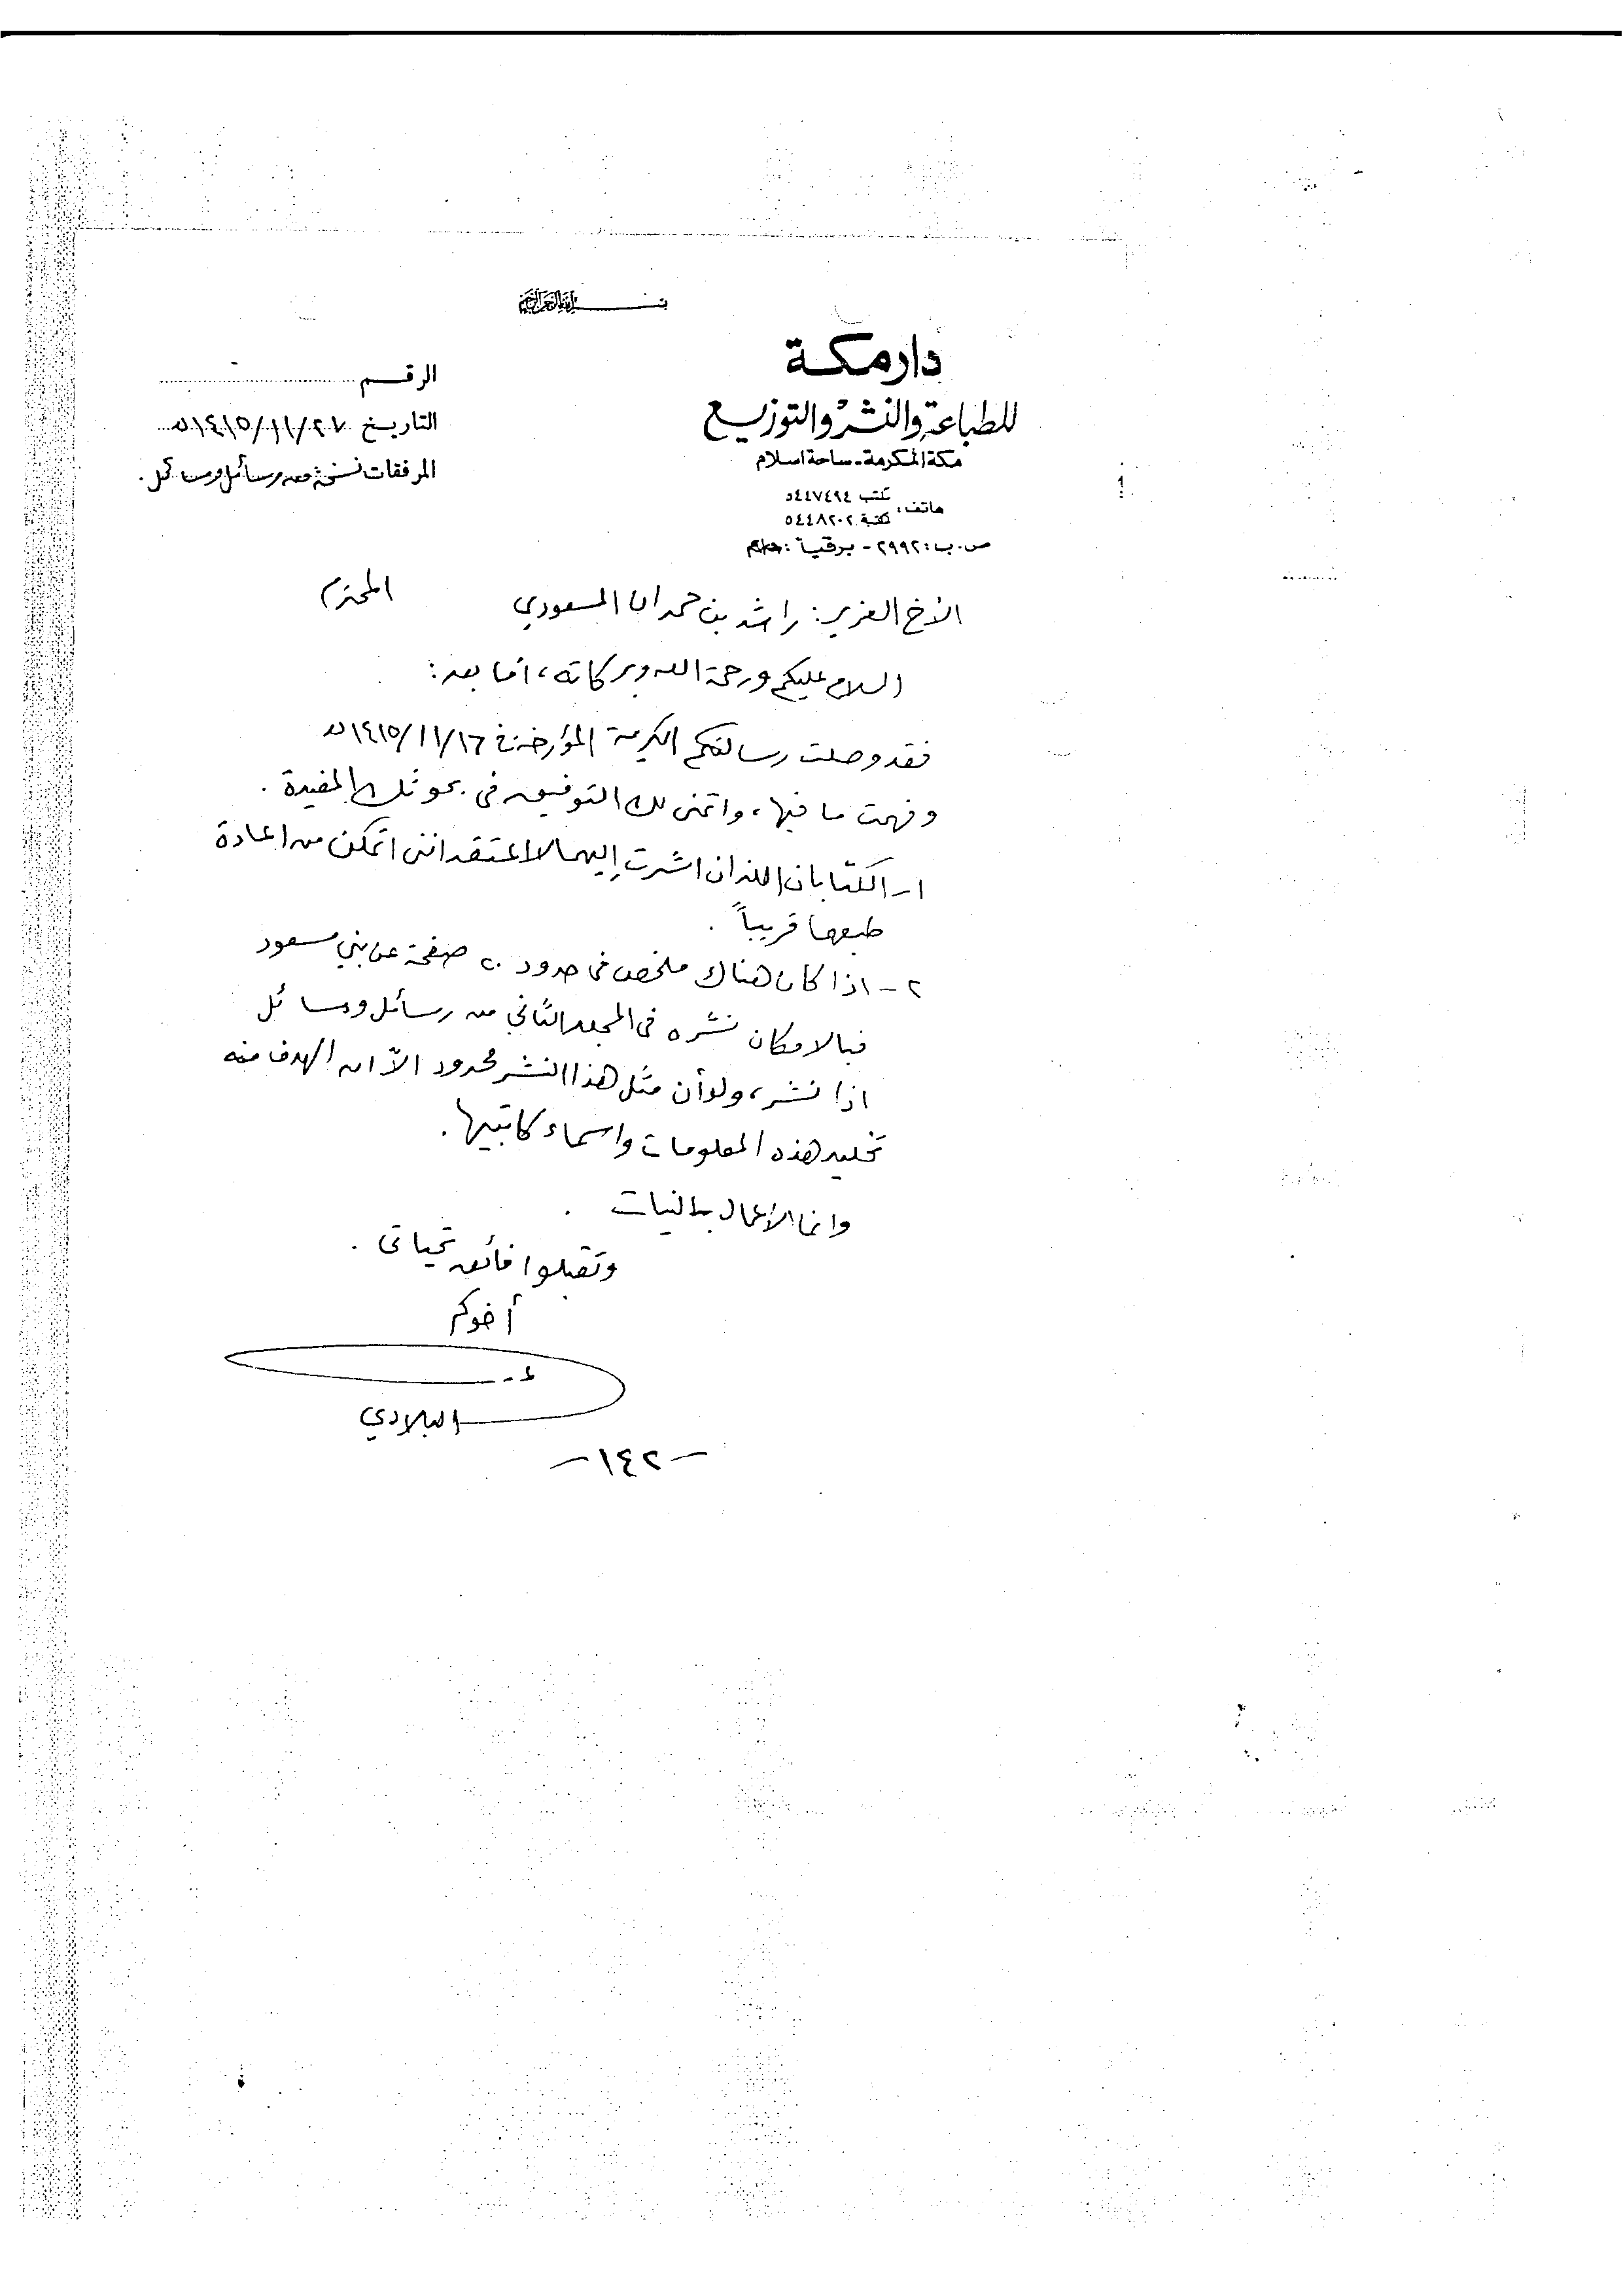 بسم الله الرحمن الرحيم
دار مكة
للطباعة والنشر والتوزيع
مكة المكرمة - ساحة اسلام
هاتف: مكتب ٥٤٤٧٤٩٤
مكتبة ٥٤٤٨٢٠٢
ص.ب: ٢٩٩٢ - برقياً:
الرقم
التاريخ ١٤١٥/١١/٢٧هـ
المرفقات نسخة من رسائل ومسائل.
الأخ العزيز: راشد بن حمدان المسعودي المحترم
السلام عليكم ورحمة الله وبركاته، أما بعد:
فقد وصلت رسالتكم الكريمة المؤرخة في ١٤١٥/١١/١٦هـ
وفهمت ما فيها، واتمنى لك التوفيق في بحوثك المفيدة.
١- الكتابان اللذان اشرت إليهما لا اعتقد انني اتمكن من اعادة
طبعها قريباً.
٢- اذا كان هناك ملخص في حدود ٢٠ صفحة عن بني مسعود
فبالامكان نشره في المجلد الثاني من رسائل ومسائل
اذا نشر، ولو أن مثل هذا النشر محدود الاّ ان الهدف منه
تخليد هذه المعلومات واسماء كاتبيها.
وانما الأعمال بالنيات.
وتقبلوا فائق تحياتي.
أخوكم
البلادي
-١٤٢-